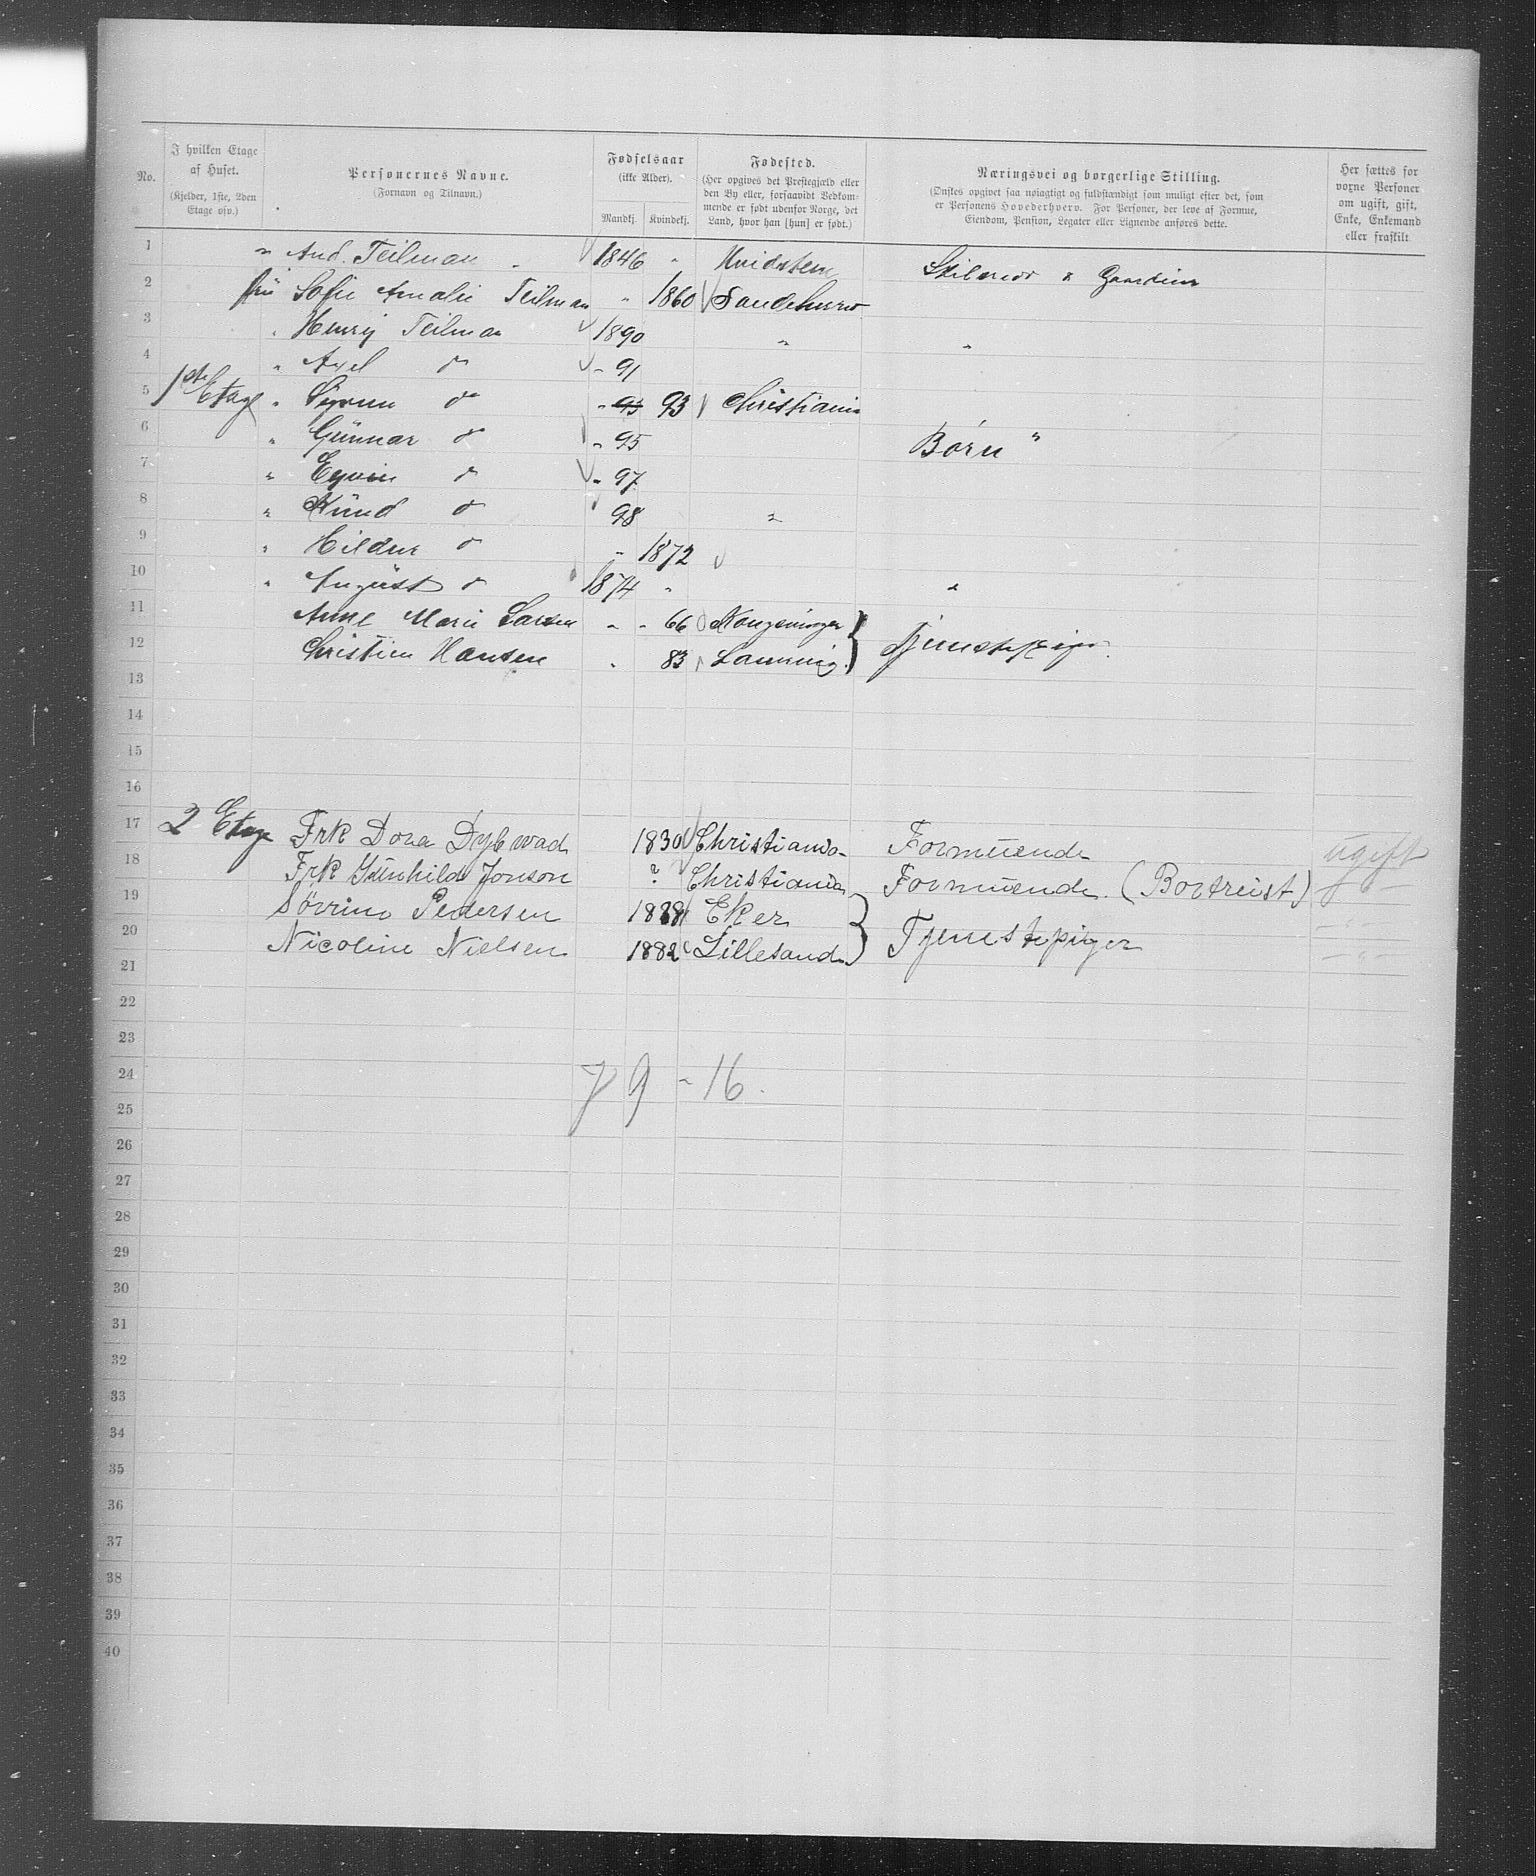 No.
I hvilken Etage af Huset.
(Kjelder, 1ste, 2den Etage osv.)
Personernes Navne.
(Fornavn og Tilnavn.)
Fødselsaar
(ikke Alder).
Mandkj.
Kvindekj.
Fødested.
(Her opgives det Prestegjæld eller
den By eller, forsaavidt Vedkom-
mende er født udenfor Norge, det
Land, hvor han [hun] er født.)
Næringsvei og borgerlige Stilling.
(Ønskes opgivet saa nøiagtigt og fuldstændigt som muligt efter det, som
er Personens Hovederhverv. For Personer, der leve af Formue,
Eiendom, Pension, Legater eller Lignende anføres dette.
Her sættes for
voxne Personer
om ugift, gift,
Enke, Enkemand
eller fraskilt.
1 " And. Teilman 1846 " Hvidsten
2 frü Sofie Amalie Teilman " 1860 Sandeherred
3 " Henry Teilman 1890 " "
4 " Axel do - 91
5 1ste Etage " do - 95 93 Christiania
6 " Günnar do - 95 Børn "
7 " do - 97
8 " Knüd do 98 "
9 " Hildur do - 1872
10 " Aügüst do 1874 " "
11 Anne Marie Larsen " - 66 Kongsvinger
12 Christine Hansen " 83 Tjenestepiger
13
14
15
16
17 2 Etage Frk Dora Dybwad 1830 Christiania Formüende ugift
18 Frk Günhild Jonson ? Christiania Formüende. (Bortreist) - " -
19 Sørrine Pedersen 1838 Eker - " -
20 Nicoline Nielsen 1882 Lillesand Tjenestepiger - " -
21
22
23
24 7 9 - 16.
25
26
27
28
29
30
31
32
33
34
35
36
37
38
39
40